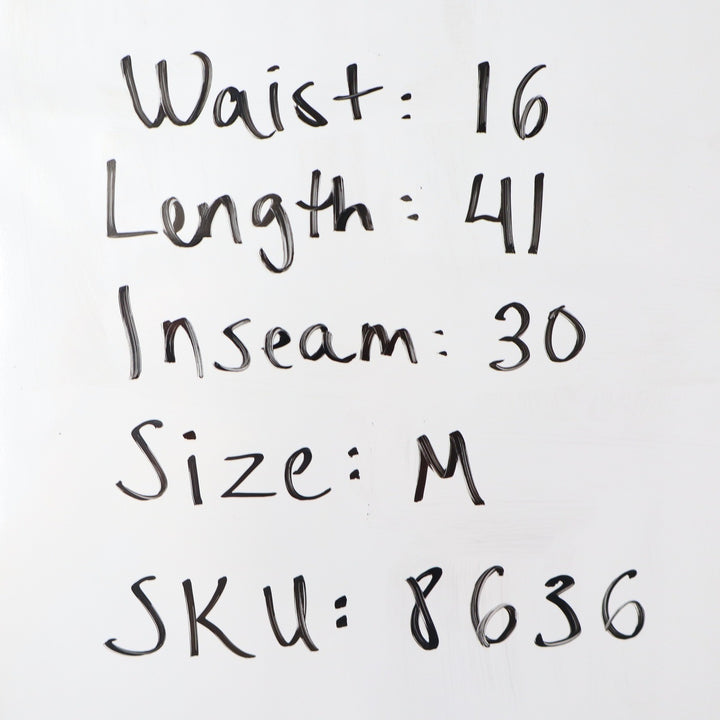 Waist: 16
Length: 41
Inseam: 30
Size: M
SKU: 8636